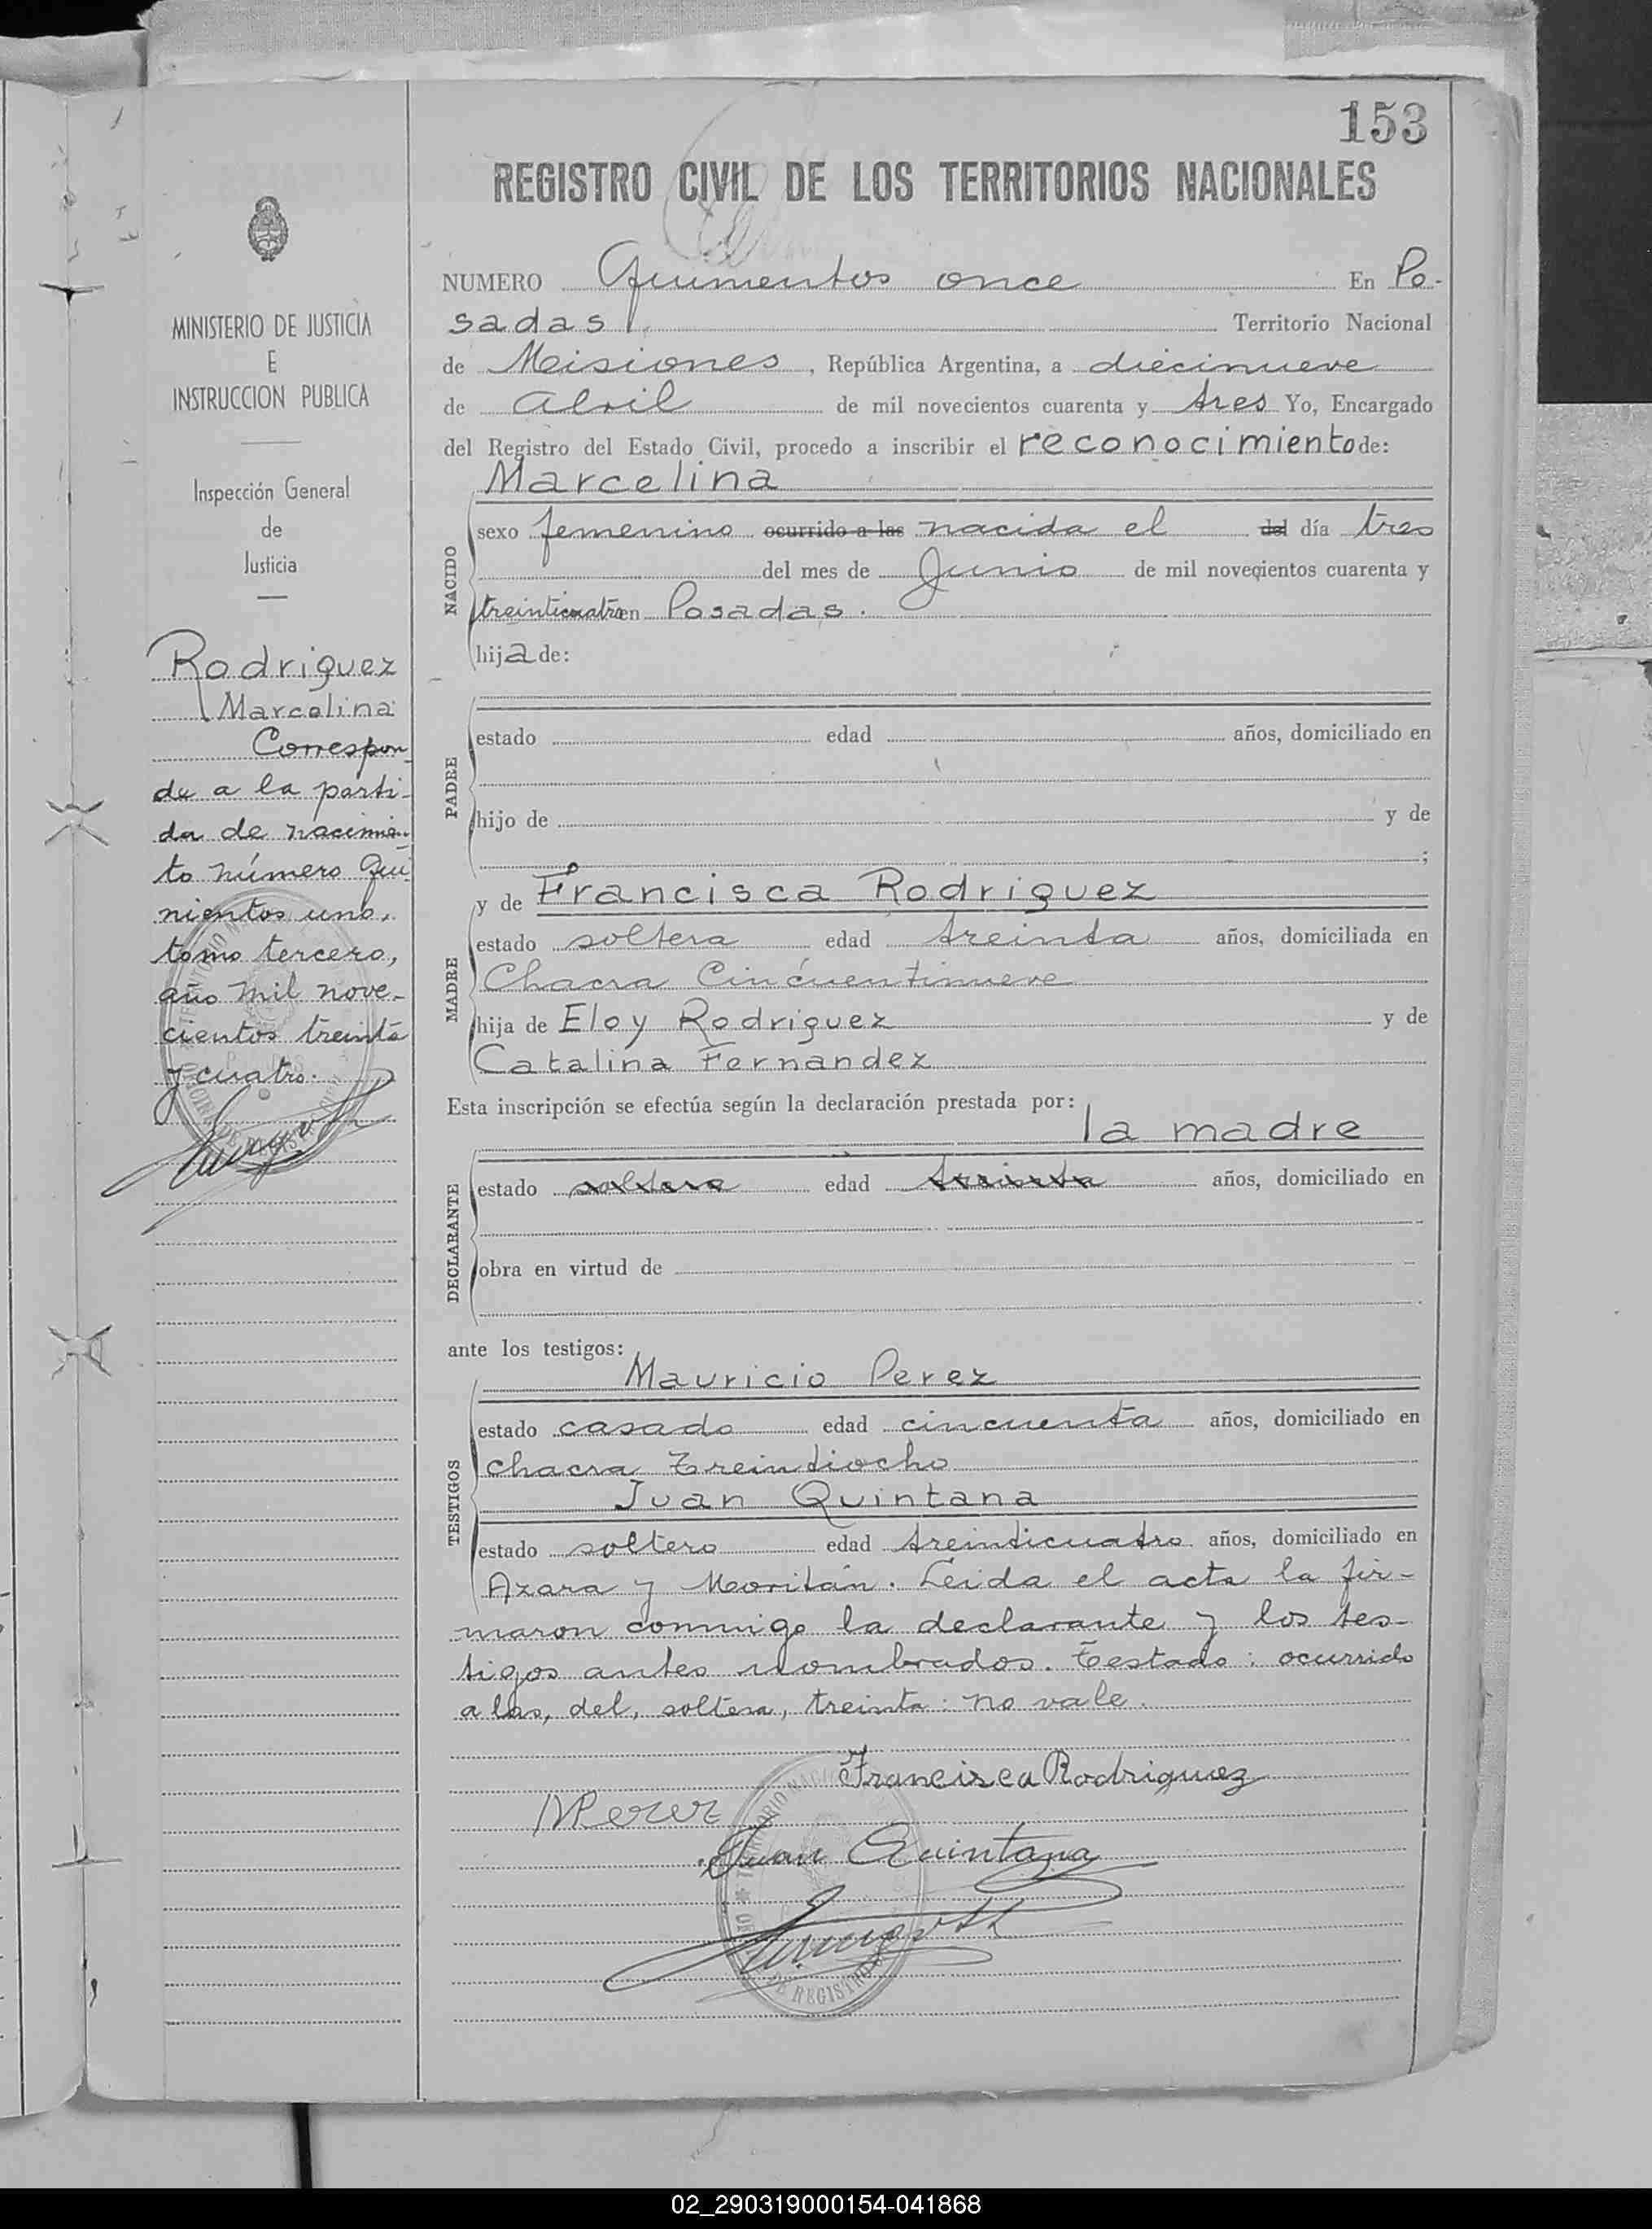 153
REGISTRO CIVIL DE LOS TERRITORIOS NACIONALES
MINISTERIO DE JUSTICIA
E
INSTRUCCION PUBLICA
Inspección General
de
Justicia
Rodriguez
Marcelina
Correspon
de a la parti-
da de nacimien
to número Qui
nientos uno,
tomo tercero,
año mil nove-
cientos treinta
y cuatro.
NUMERO Quinientos once En Po-
sadas Territorio Nacional
de Misiones, República Argentina, a diecinueve
de Abril de mil novecientos cuarenta y tres Yo, Encargado
del Registro del Estado Civil, procedo a inscribir el reconocimiento de:
Marcelina
NACIDO
sexo femenino ocurrido a las nacida el del día tres
del mes de Junio de mil novecientos cuarenta y
treinticuatro en Posadas.
hija de:
PADRE
estado edad años, domiciliado en
hijo de y de
;
y de Francisca Rodriguez
MADRE
estado soltera edad treinta años, domiciliada en
Chacra Cincuentinueve
hija de Eloy Rodriguez y de
Catalina Fernandez
Esta inscripción se efectúa según la declaración prestada por:
la madre
DECLARANTE
estado soltera edad treinta años, domiciliado en
obra en virtud de
ante los testigos:
Mauricio Perez
TESTIGOS
estado casado edad cincuenta años, domiciliado en
chacra treintiocho
Juan Quintana
estado soltero edad treinticuatro años, domiciliado en
Azara y Moritán. Leida el acta la fir-
maron conmigo la declarante y los tes-
tigos antes nombrados. Testado: ocurrido
a las, del, soltera, treinta: no vale.
Francisca Rodriguez
MPerez
Juan Quintana
DE REGISTRO
02_290319000154-041868